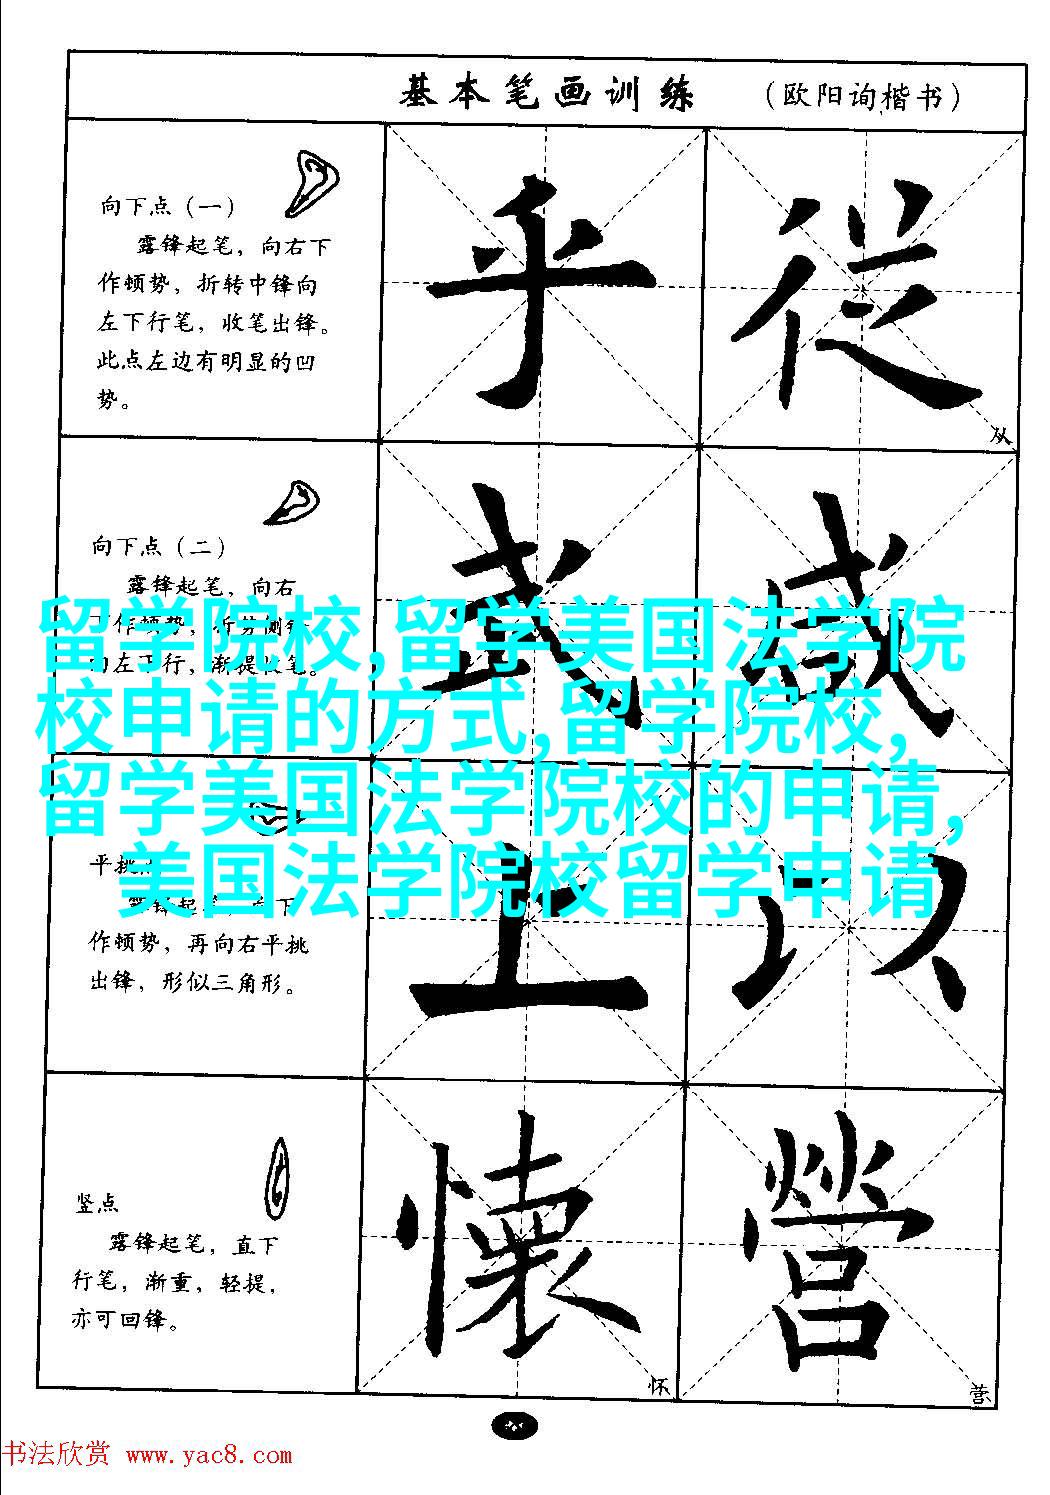 基本笔画训练 （欧阳询楷书）
向下点（一）
露锋起笔，向右下
作顿势，折转中锋向
左下行笔，收笔出锋。
此点左边有明显的凹
势。
乎 從
从
向下点（二）
露锋起笔，向右
下作顿势，折笔侧锋
向左下行，渐提收笔。
武 城
留学院校,留学美国法学院
校申请的方式,留学院校,
留学美国法学院校的申请,
美国法学院校留学申请
平挑点
露锋起笔，向下
作顿势，再向右平挑
出锋，形似三角形。
上 以
竖点
露锋起笔，直下
行笔，渐重，轻提，
亦可回锋。
懷 營
怀 营
书法欣赏 www.yac8.com